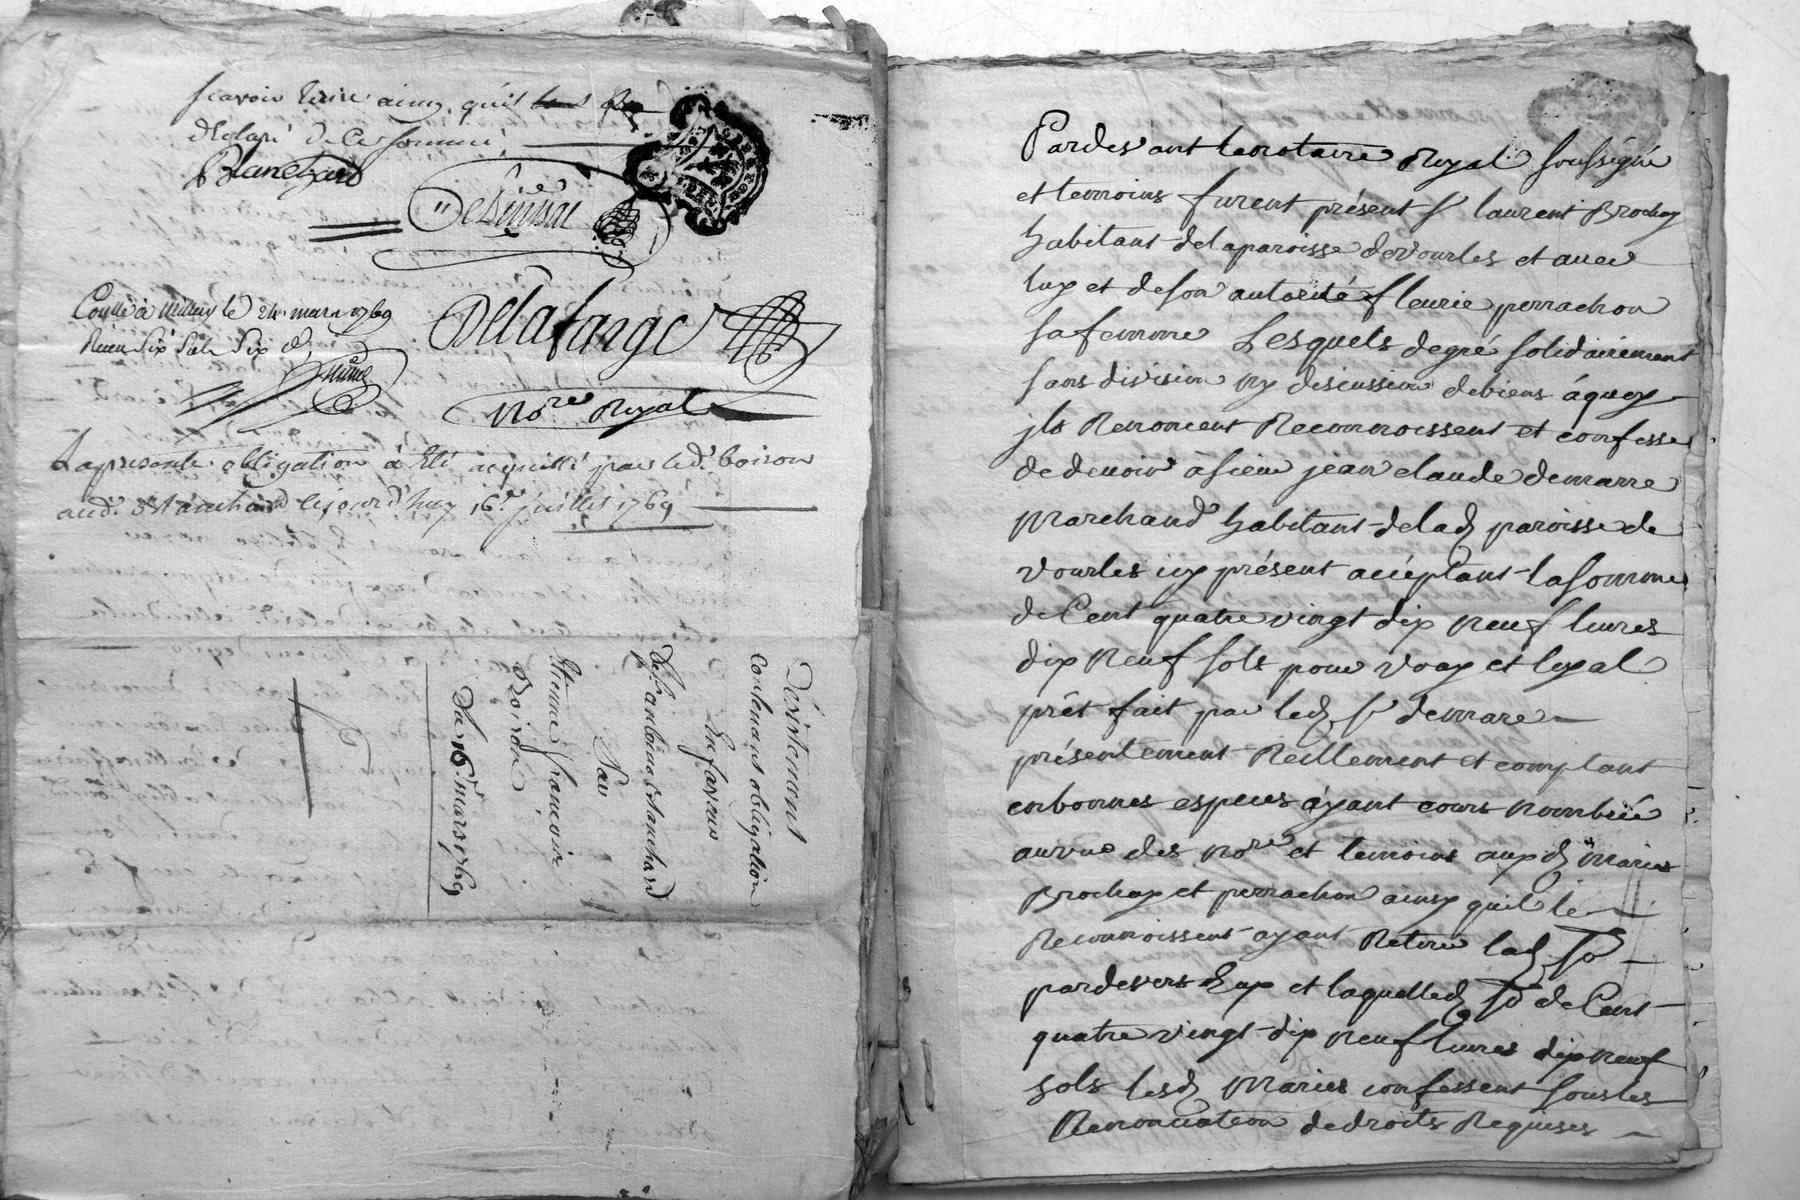 scavoir Ecrire ainsy quils
declaré de ce sommé
Blanchard
Controllé à Millery le 24 mars 1769
Reçu Six Sols Six d
Delafarge
No.re Royal
La presente obligation à Eté acquitté par led.t boiron
aud.t Blanchard cejourd'huy 16.e juillet 1769
Désistement
Contenant obligation
En faveur
De s.r antoine blanchard
Par
Etienne françois
Boiron
Du 16.e mars 1769
Pardevant le notaire Royal soussigné
et temoins furent présent Sr laurent Brochay
habitant de la paroisse de vourles et avec
luy et de son autorité fleurie perrachon
sa femme Lesquels de gré solidairement
sans division ny discussion de biens à quoy
jls Renoncent Reconnoissent et confesse
de devoir à sieur jean claude demarre
Marchand habitant de lad paroisse de
vourles icy présent acceptant la somme
de Cent quatre vingt dix neuf livres
dix neuf sols pour vray et loyal
prêt fait par led Sr demare
présentement Réellement et comptant
en bonnes especes ayant cours nombrée
au vue des no.re et temoins aux d Mariés
Brochay et perrachon ainsy quil le
Reconnoissent ayant Retiré lad So
par devers Eux et laquelled So de Cent
quatre vingt dix neuf livres dix neuf
sols lesd Mariés confessent sous les
Renonciation de droits Requises